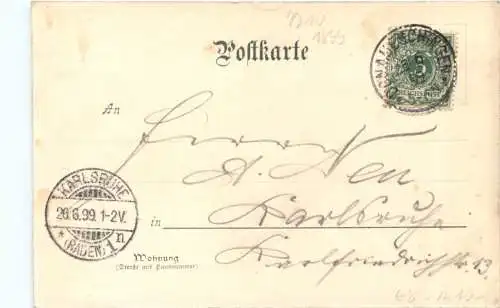 Postkarte
DONAUESCHINGEN
5
An
Herrn
A. Neu
KARLSRUHE
26.6.99.1-2V.
* (BADEN) 1 n
in Karlsruhe
Wohnung
(Straße und Hausnummer)
Karlfriedrichstr. 13